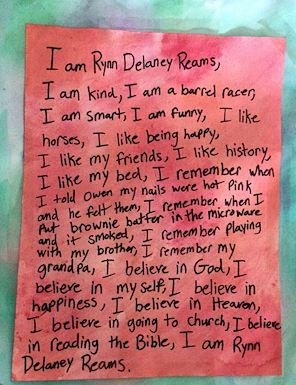 I am Rynn Delaney Reams,
I am kind, I am a barrel racer,
I am smart, I am funny, I like
horses, I like being happy,
I like my friends, I like history,
I like my bed, I remember when
I told Owen my nails were hot pink
and he felt them, I remember when I
Put brownie batter in the microware
and it smoked, I remember playing
with my brother, I remember my
grandpa, I believe in God, I
believe in my self, I believe in
happiness, I believe in Heaven,
I believe in going to church, I believe
in reading the Bible, I am Rynn
Delaney Reams.